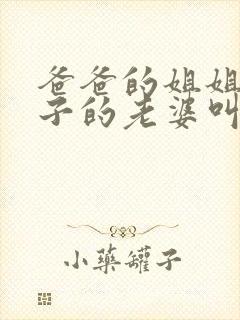 爸爸的姐姐
子的老婆叫
小药罐子